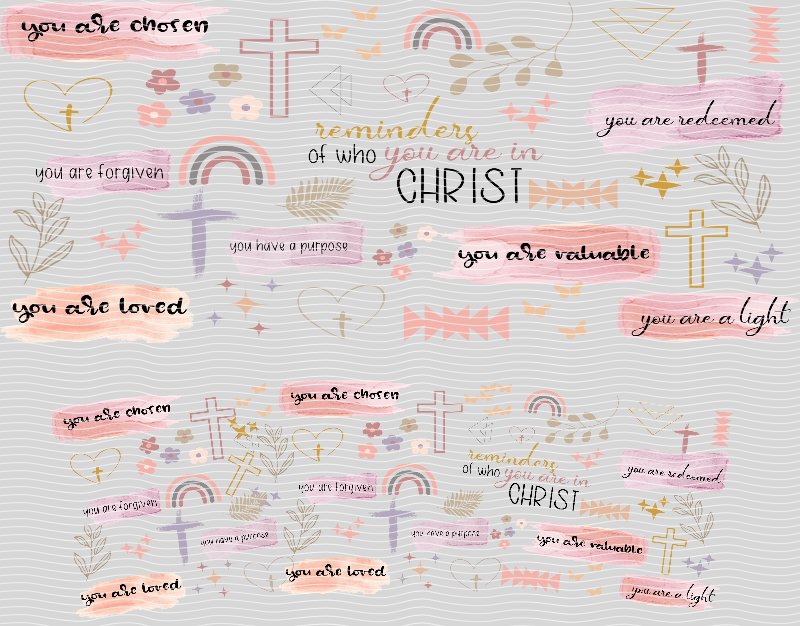 you are chosen
reminders
of who you are in
CHRIST
you are redeemed
you are forgiven
you have a purpose
you are valuable
you are loved
you are a light
you are chosen
you are chosen
reminders
of who you are in
CHRIST
you are redeemed
you are forgiven
you are forgiven
you have a purpose
you have a purpose
you are valuable
you are loved
you are loved
you are a light